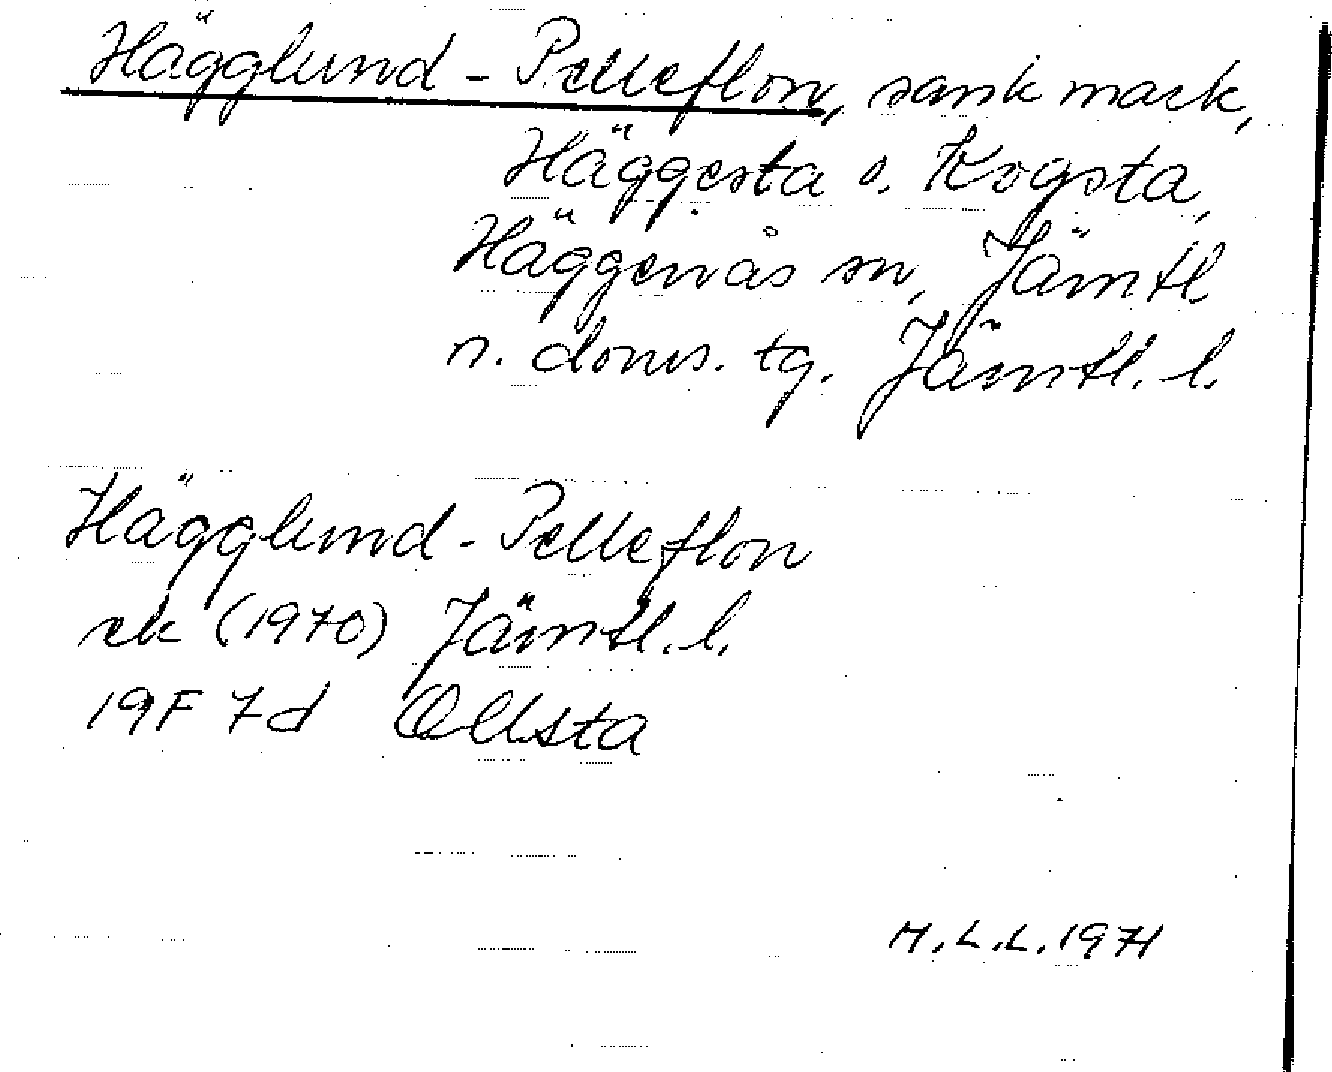 Hägglund-Pelleflon, sank mark,
Häggesta o. Kogsta,
Häggenås sn, Jämtl
n. doms. tg. Jämtl. l.
Hägglund-Pelleflon
ek (1970) Jämtl. l.
19F 7d Ollsta
M.L.L. 1971